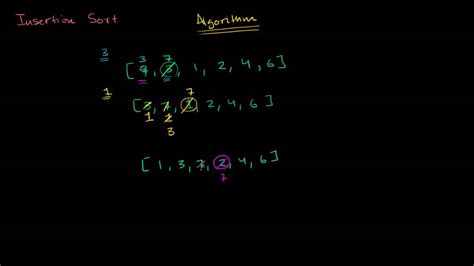 Insertion Sort Algorithm
3 3 7
[ , , 1, 2, 4, 6]
1 7
[3, 7, 1, 2, 4, 6]
1 2
3
[1, 3, 7, 2, 4, 6]
7